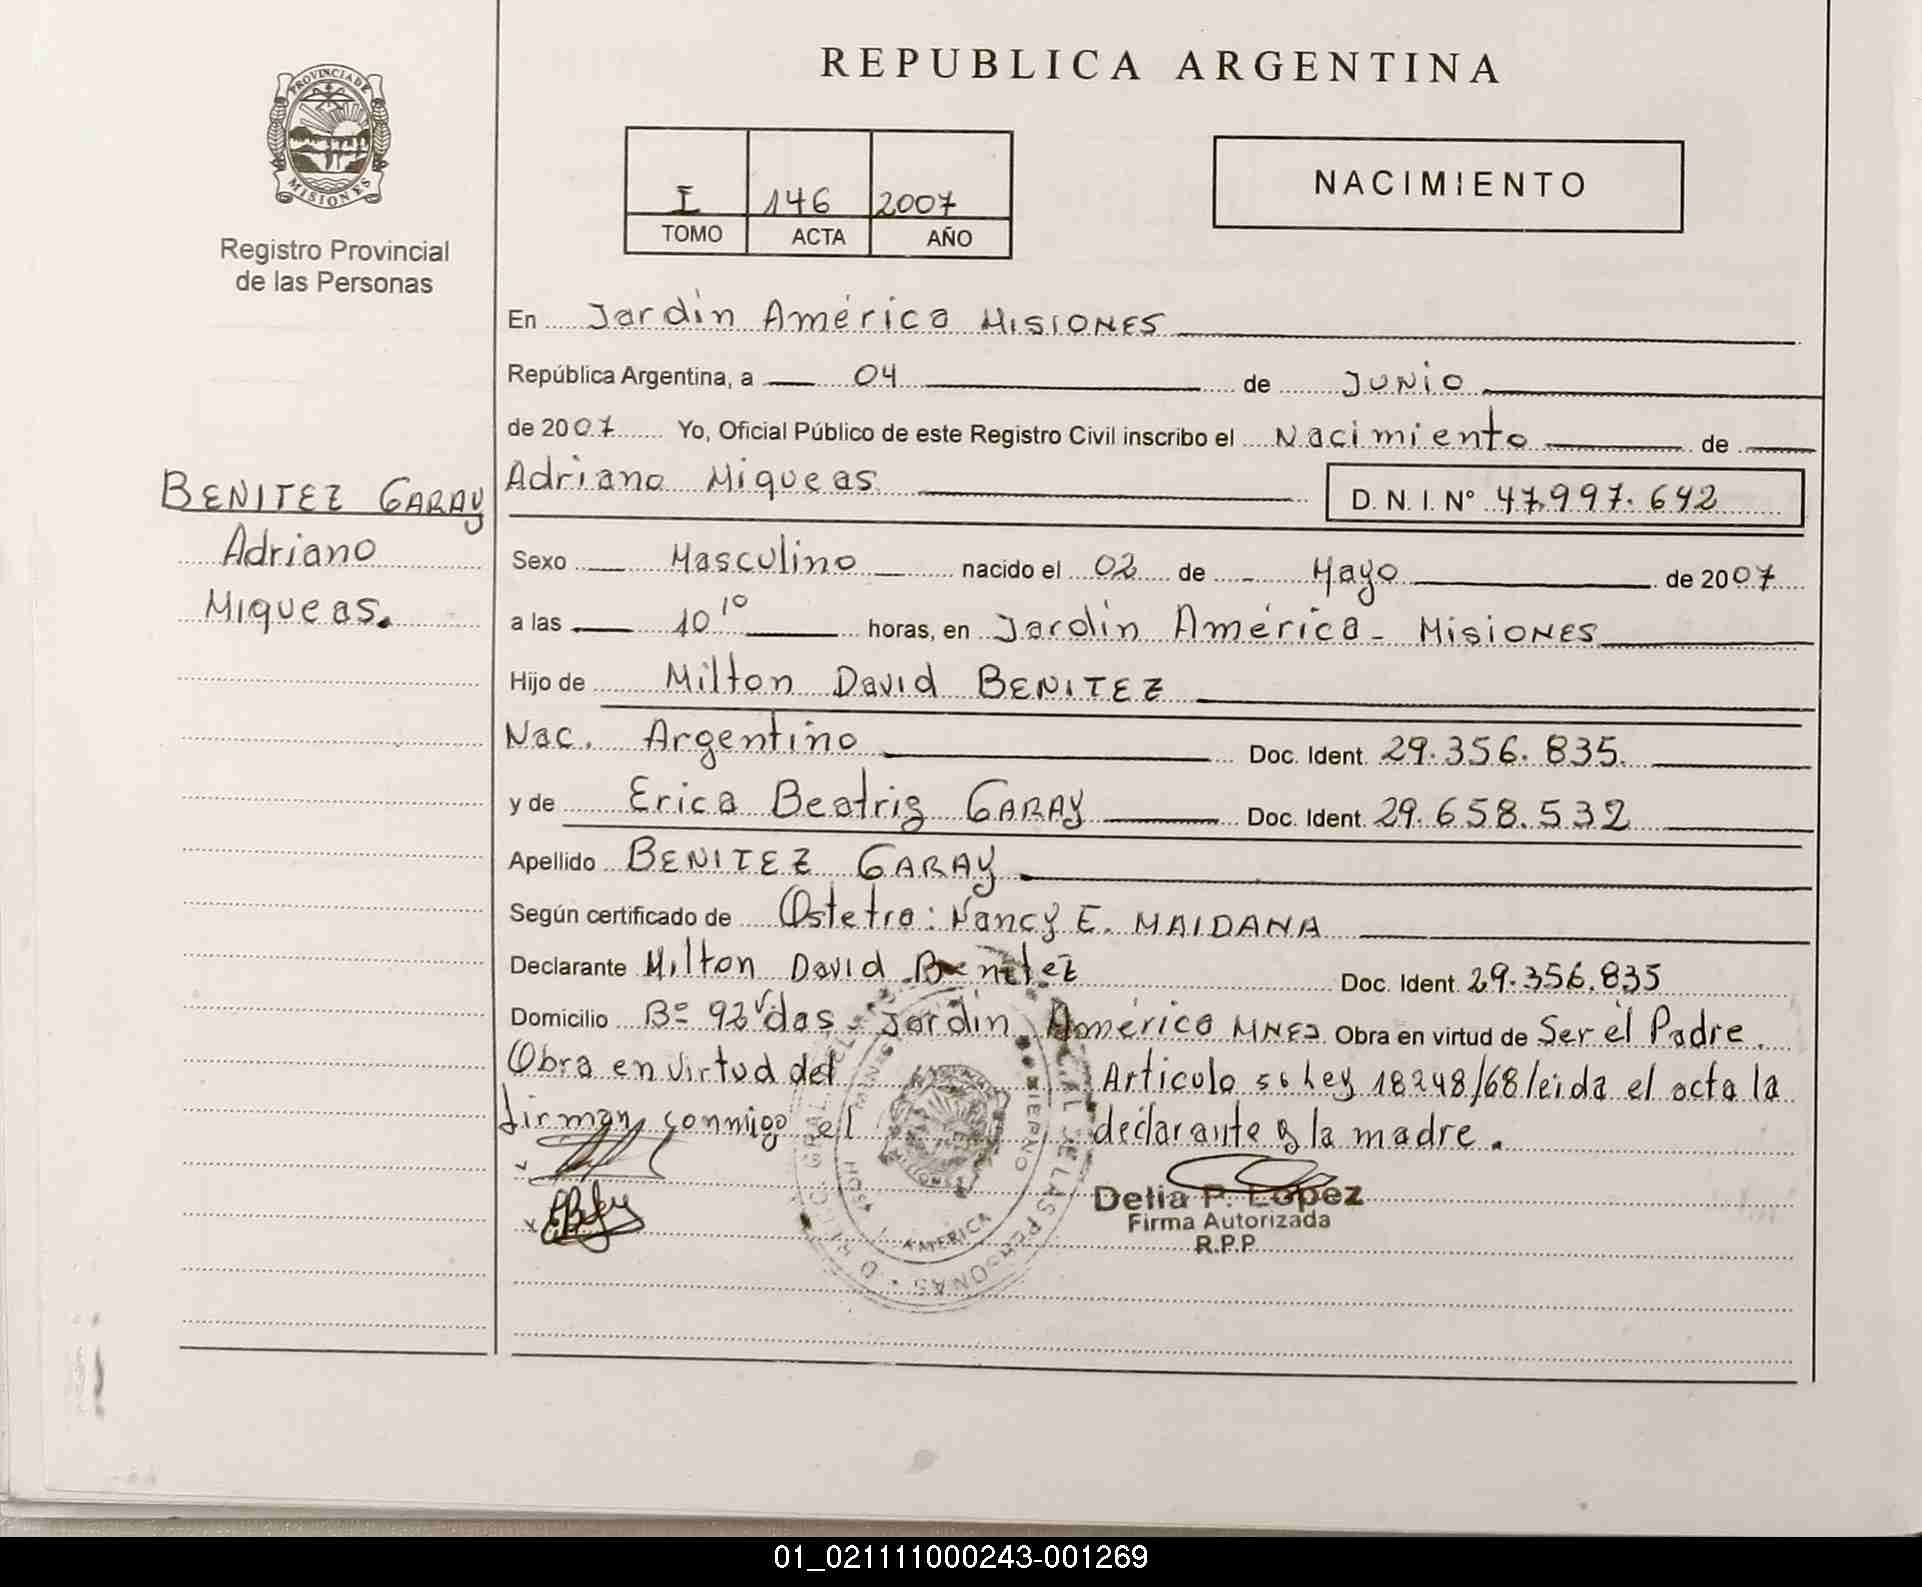 REPUBLICA ARGENTINA
PROVINCIA DE MISIONES
Registro Provincial
de las Personas
I 146 2007
TOMO ACTA AÑO
NACIMIENTO
En Jardín América MISIONES
República Argentina, a 04 de JUNIO
de 2007 Yo, Oficial Público de este Registro Civil inscribo el Nacimiento de
Adriano Miqueas D. N. I. Nº 47.997.642
BENITEZ GARAY
Adriano
Miqueas.
Sexo Masculino nacido el 02 de Mayo de 2007
a las 10 10 horas, en Jardín América - MISIONES
Hijo de Milton David BENITEZ
Nac. Argentino Doc. Ident. 29.356.835.
y de Erica Beatriz GARAY Doc. Ident. 29.658.532
Apellido BENITEZ GARAY
Según certificado de Ostetra: Nancy E. MAIDANA
Declarante Milton David Benitez Doc. Ident. 29.356.835
Domicilio Bº Jardín América MNES Obra en virtud de Ser el Padre.
Obra en virtud del Artículo Ley 18248/68 leida el acta la
firman conmigo el declarante y la madre.
Delia P. Lopez
Firma Autorizada
R.P.P
01_021111000243-001269